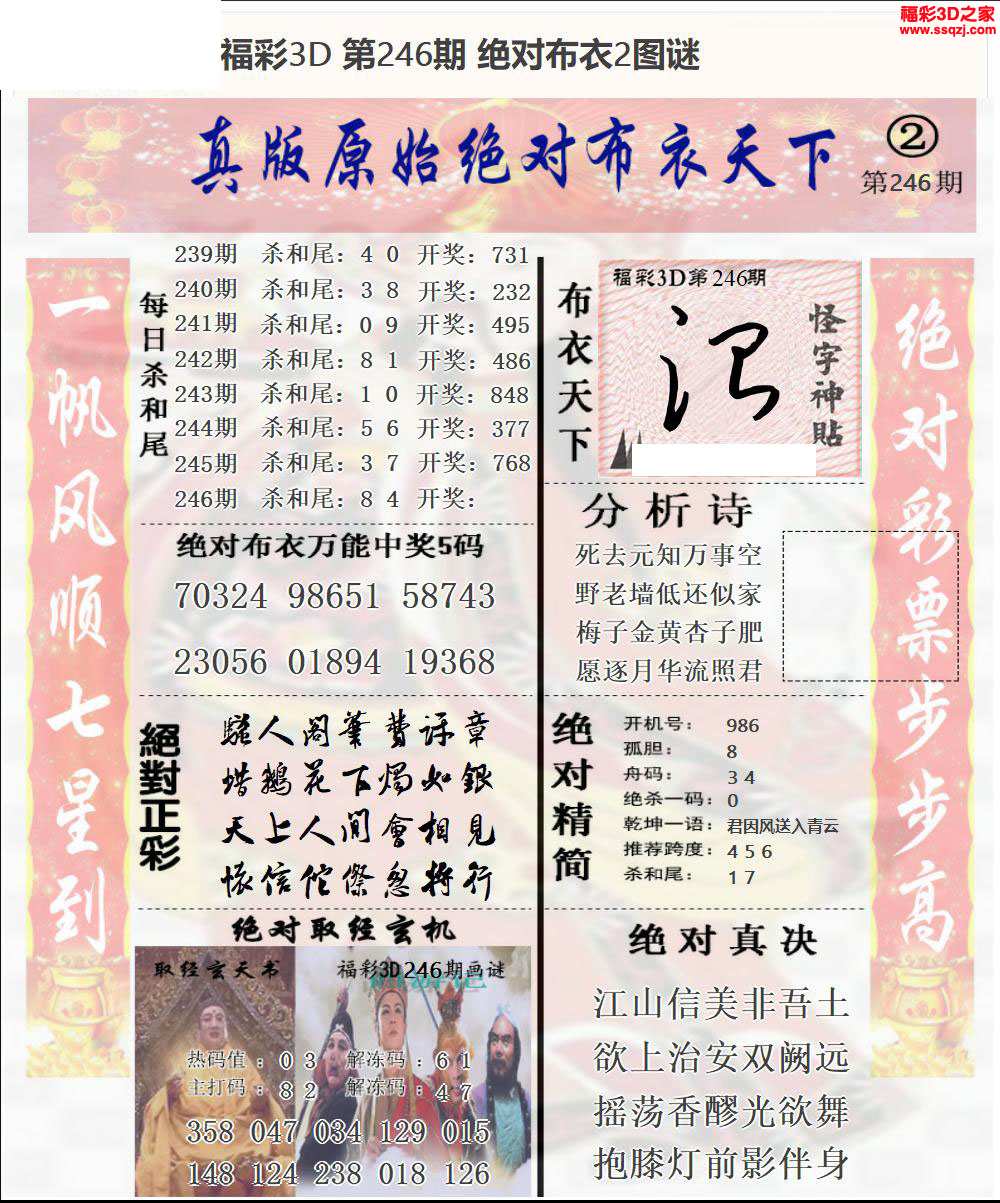 福彩3D之家
www.ssqzj.com
福彩3D 第246期 绝对布衣2图谜
真版原始绝对布衣天下
②
第246期
一帆风顺七星到
每日杀和尾
239期 杀和尾：4 0 开奖：731
240期 杀和尾：3 8 开奖：232
241期 杀和尾：0 9 开奖：495
242期 杀和尾：8 1 开奖：486
243期 杀和尾：1 0 开奖：848
244期 杀和尾：5 6 开奖：377
245期 杀和尾：3 7 开奖：768
246期 杀和尾：8 4 开奖：
绝对布衣万能中奖5码
70324 98651 58743
23056 01894 19368
絕對正彩
騷人閣筆費評章
天上人間會相見
绝对取经玄机
取经玄天书
福彩3D246期画谜
热码值：0 3 解冻码：6 1
主打码：8 2 解冻码：4 7
358 047 034 129 015
148 124 238 018 126
布衣天下
福彩3D第246期
怪字神貼
分析诗
死去元知万事空
野老墙低还似家
梅子金黄杏子肥
愿逐月华流照君
绝对精简
开机号：986
孤胆：8
舟码：3 4
绝杀一码：0
乾坤一语：君因风送入青云
推荐跨度：4 5 6
杀和尾：1 7
绝对真决
江山信美非吾土
欲上治安双阙远
摇荡香醪光欲舞
抱膝灯前影伴身
绝对彩票步步高